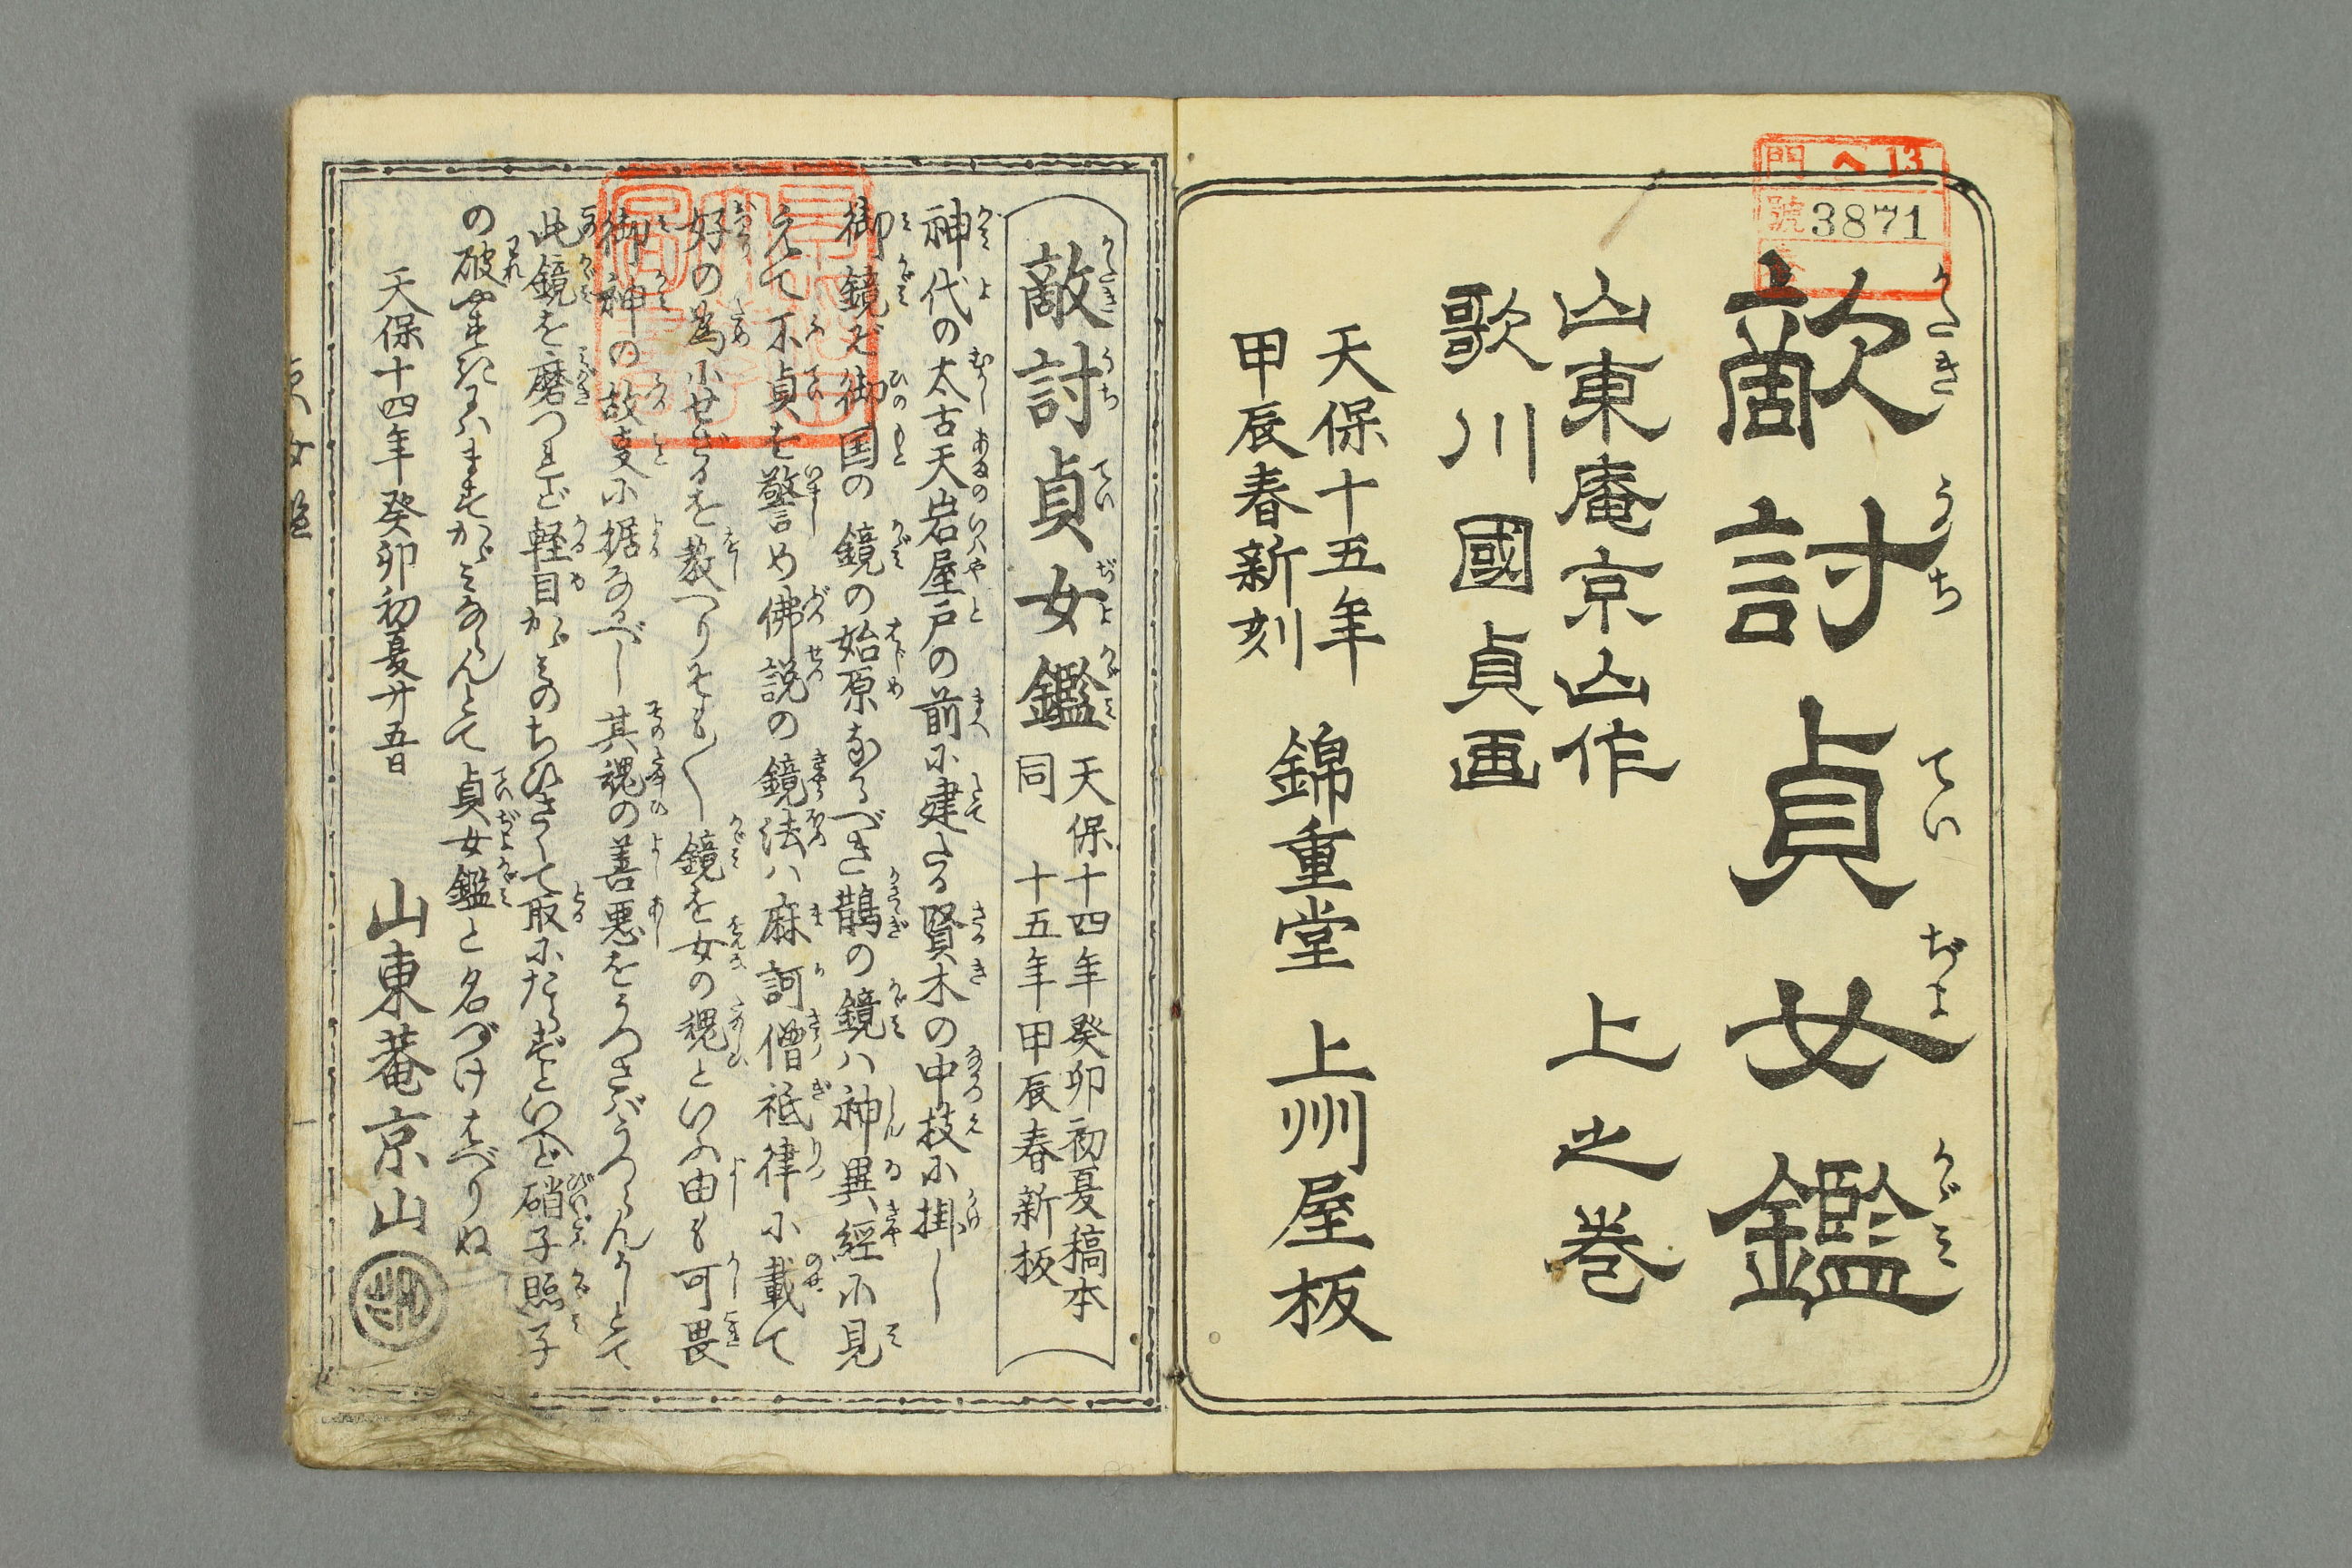 門 ヘ 13
號 3871
敵討貞女鑑
かたき うち てい ぢよ かゞみ
山東庵京山作 上之巻
歌川國貞画
天保十五年
甲辰春新刻
錦重堂 上州屋板
敵討貞女鑑
かたき うち てい ぢよ かゞみ
天保十四年癸卯初夏稿本
同 十五年甲辰春新板
神代の太古天岩屋戸の前に建たる賢木の中枝に掛し
御鏡ぞ御国の鏡の始原なるべき鵲の鏡ハ神異經に見
えて不貞を警め佛説の鏡法ハ麻訶僧祗律に載て
好の為にせざるを教へりそも〳〵鏡を女の魂といふ由も可畏
御神の故支に据なるべし其魂の善悪をうつさバうつらんかしとて
此鏡を磨つれど軽目かゞみのちひさくて取にたらずといへど硝子照子
の破やすきにハますかゞみならんとて貞女鑑と名づけはべりぬ
天保十四年癸卯初夏廿五日
山東菴京山